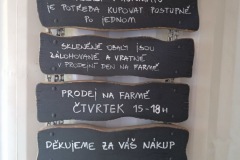 JE POTŘEBA KUPOVAT POSTUPNĚ
PO JEDNOM
SKLENĚNÉ OBALY JSOU
ZÁLOHOVANÉ A VRATNÉ
V PRODEJNÍ DEN NA FARMĚ
PRODEJ NA FARMĚ
ČTVRTEK 15-18H
DĚKUJEME ZA VÁŠ NÁKUP